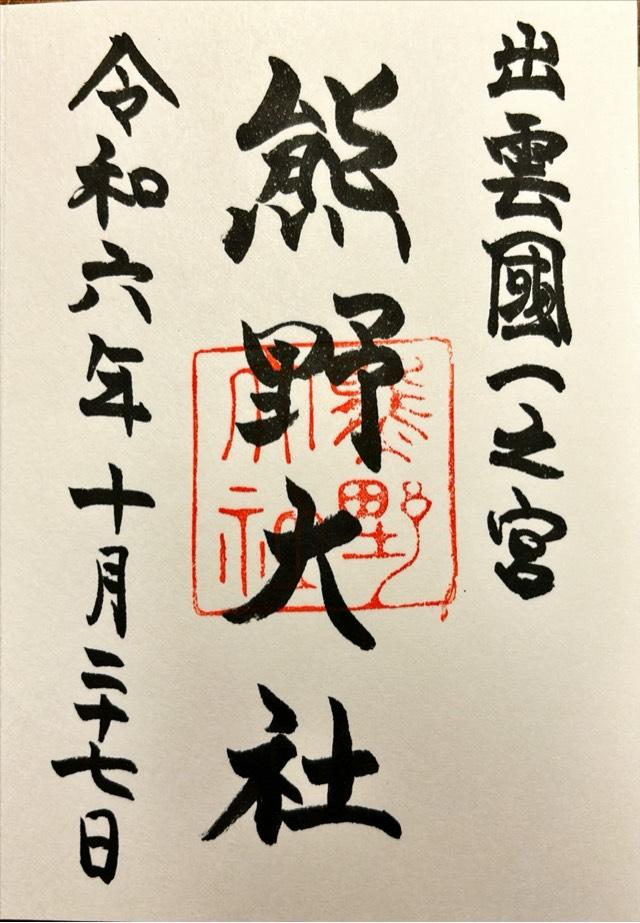 出雲國一之宮
熊野大社
熊野
大社
令和六年十月二十七日